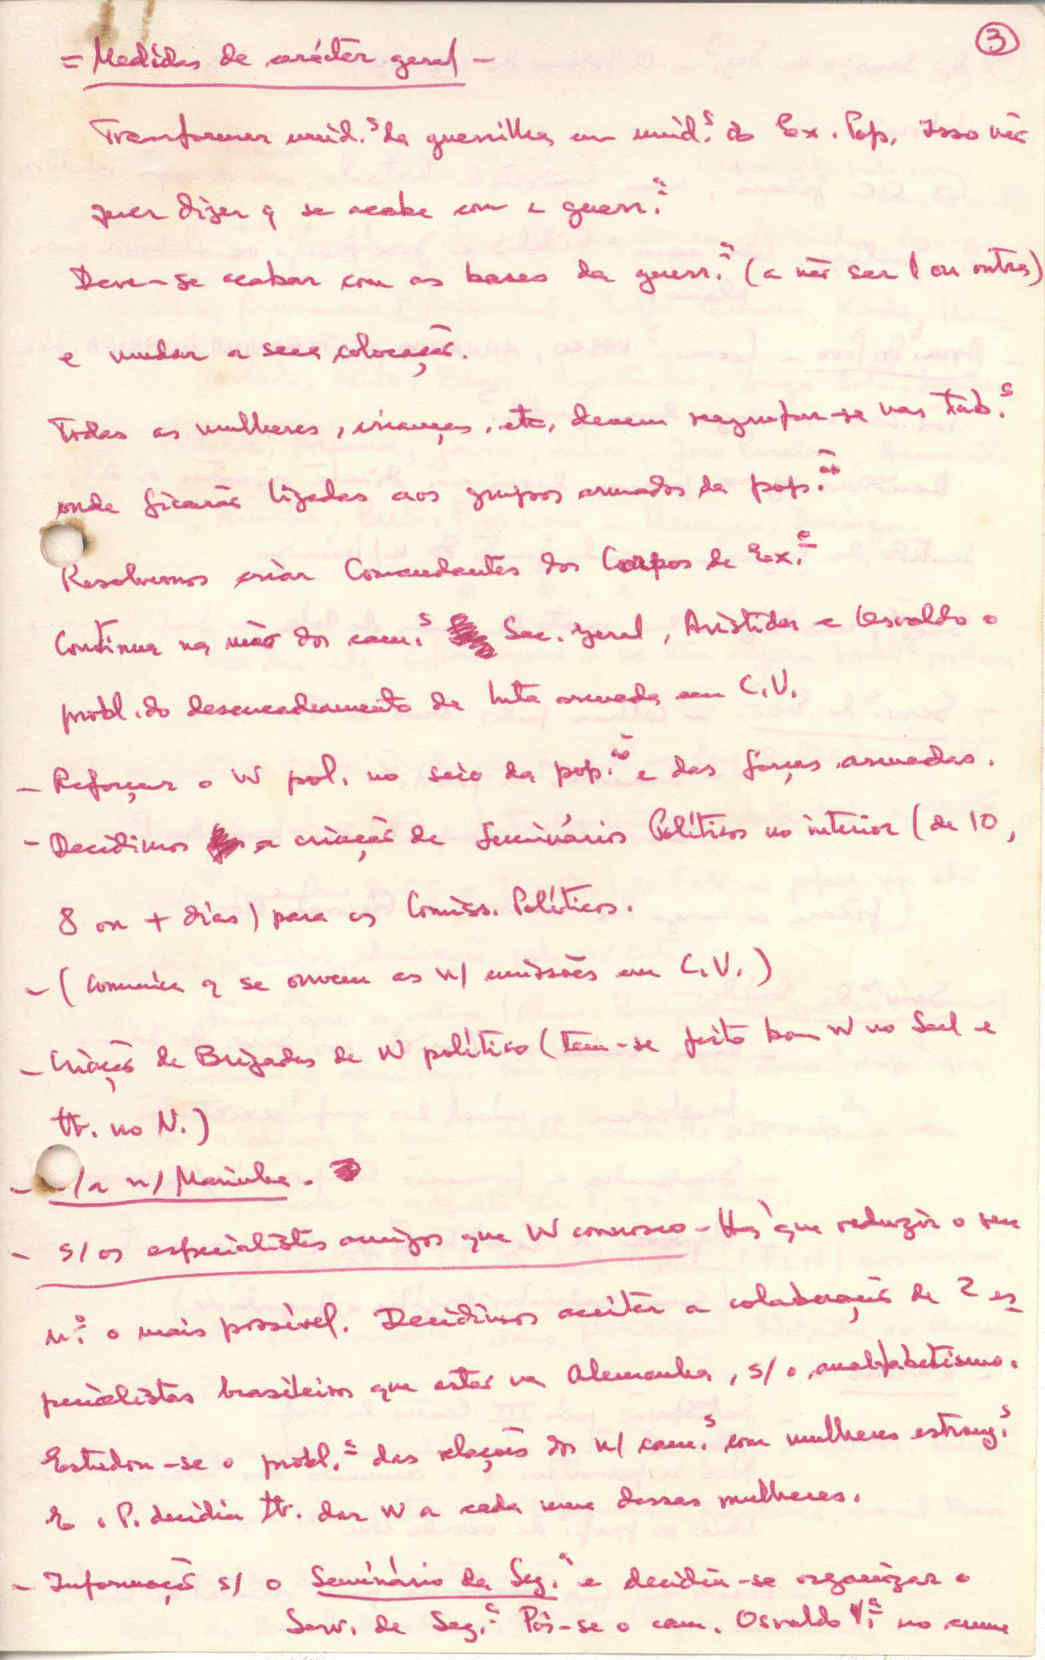 3
= Medidas de carácter geral -
Transformar unid.s da guerrilha em unid.s do Ex. Pop. Isso não
quer dizer q se acabe com a guerr.a
Deve-se acabar com as bases da guerr.a (a não ser 1 ou outra)
e mudar a sua colocação.
Todas as mulheres, crianças, etc, devem reagrupar-se nas tab.s
onde ficarão ligadas aos grupos armados da pop.ão
Resolvemos criar Comandantes dos Corpos de Ex.e
Continua na mão dos cam.s Sec. Geral, Aristides e Osvaldo o
probl. do desencadeamento da luta armada em C.V.
- Reforçar o W pol. no seio da pop.ão e das forças armadas.
- Decidimos a criação de Seminários Políticos no interior (de 10,
8 ou + dias) para os Comiss. Políticos.
- (Comunica q se ouvem as n/ emissões em C.V.)
- Criação de Brigadas de W político (tem-se feito bom W no Sul e
tb. no N.)
- /a n/ Marinha.
- s/ os especialistas amigos que W connosco - Há que reduzir o seu
n.o o mais possível. Decidimos aceitar a colaboração de 2 es
pecialistas brasileiros que estão na Alemanha, s/ o analfabetismo.
Estudou-se o probl.a das relações dos n/ cam.s com mulheres estrang.s
P. decidiu tb. dar W a cada uma dessas mulheres.
- Informação s/ o Seminário da Seg.a e decidiu-se organizar o
Serv. de Seg.a Pôs-se o cam. Osvaldo V.a no cume